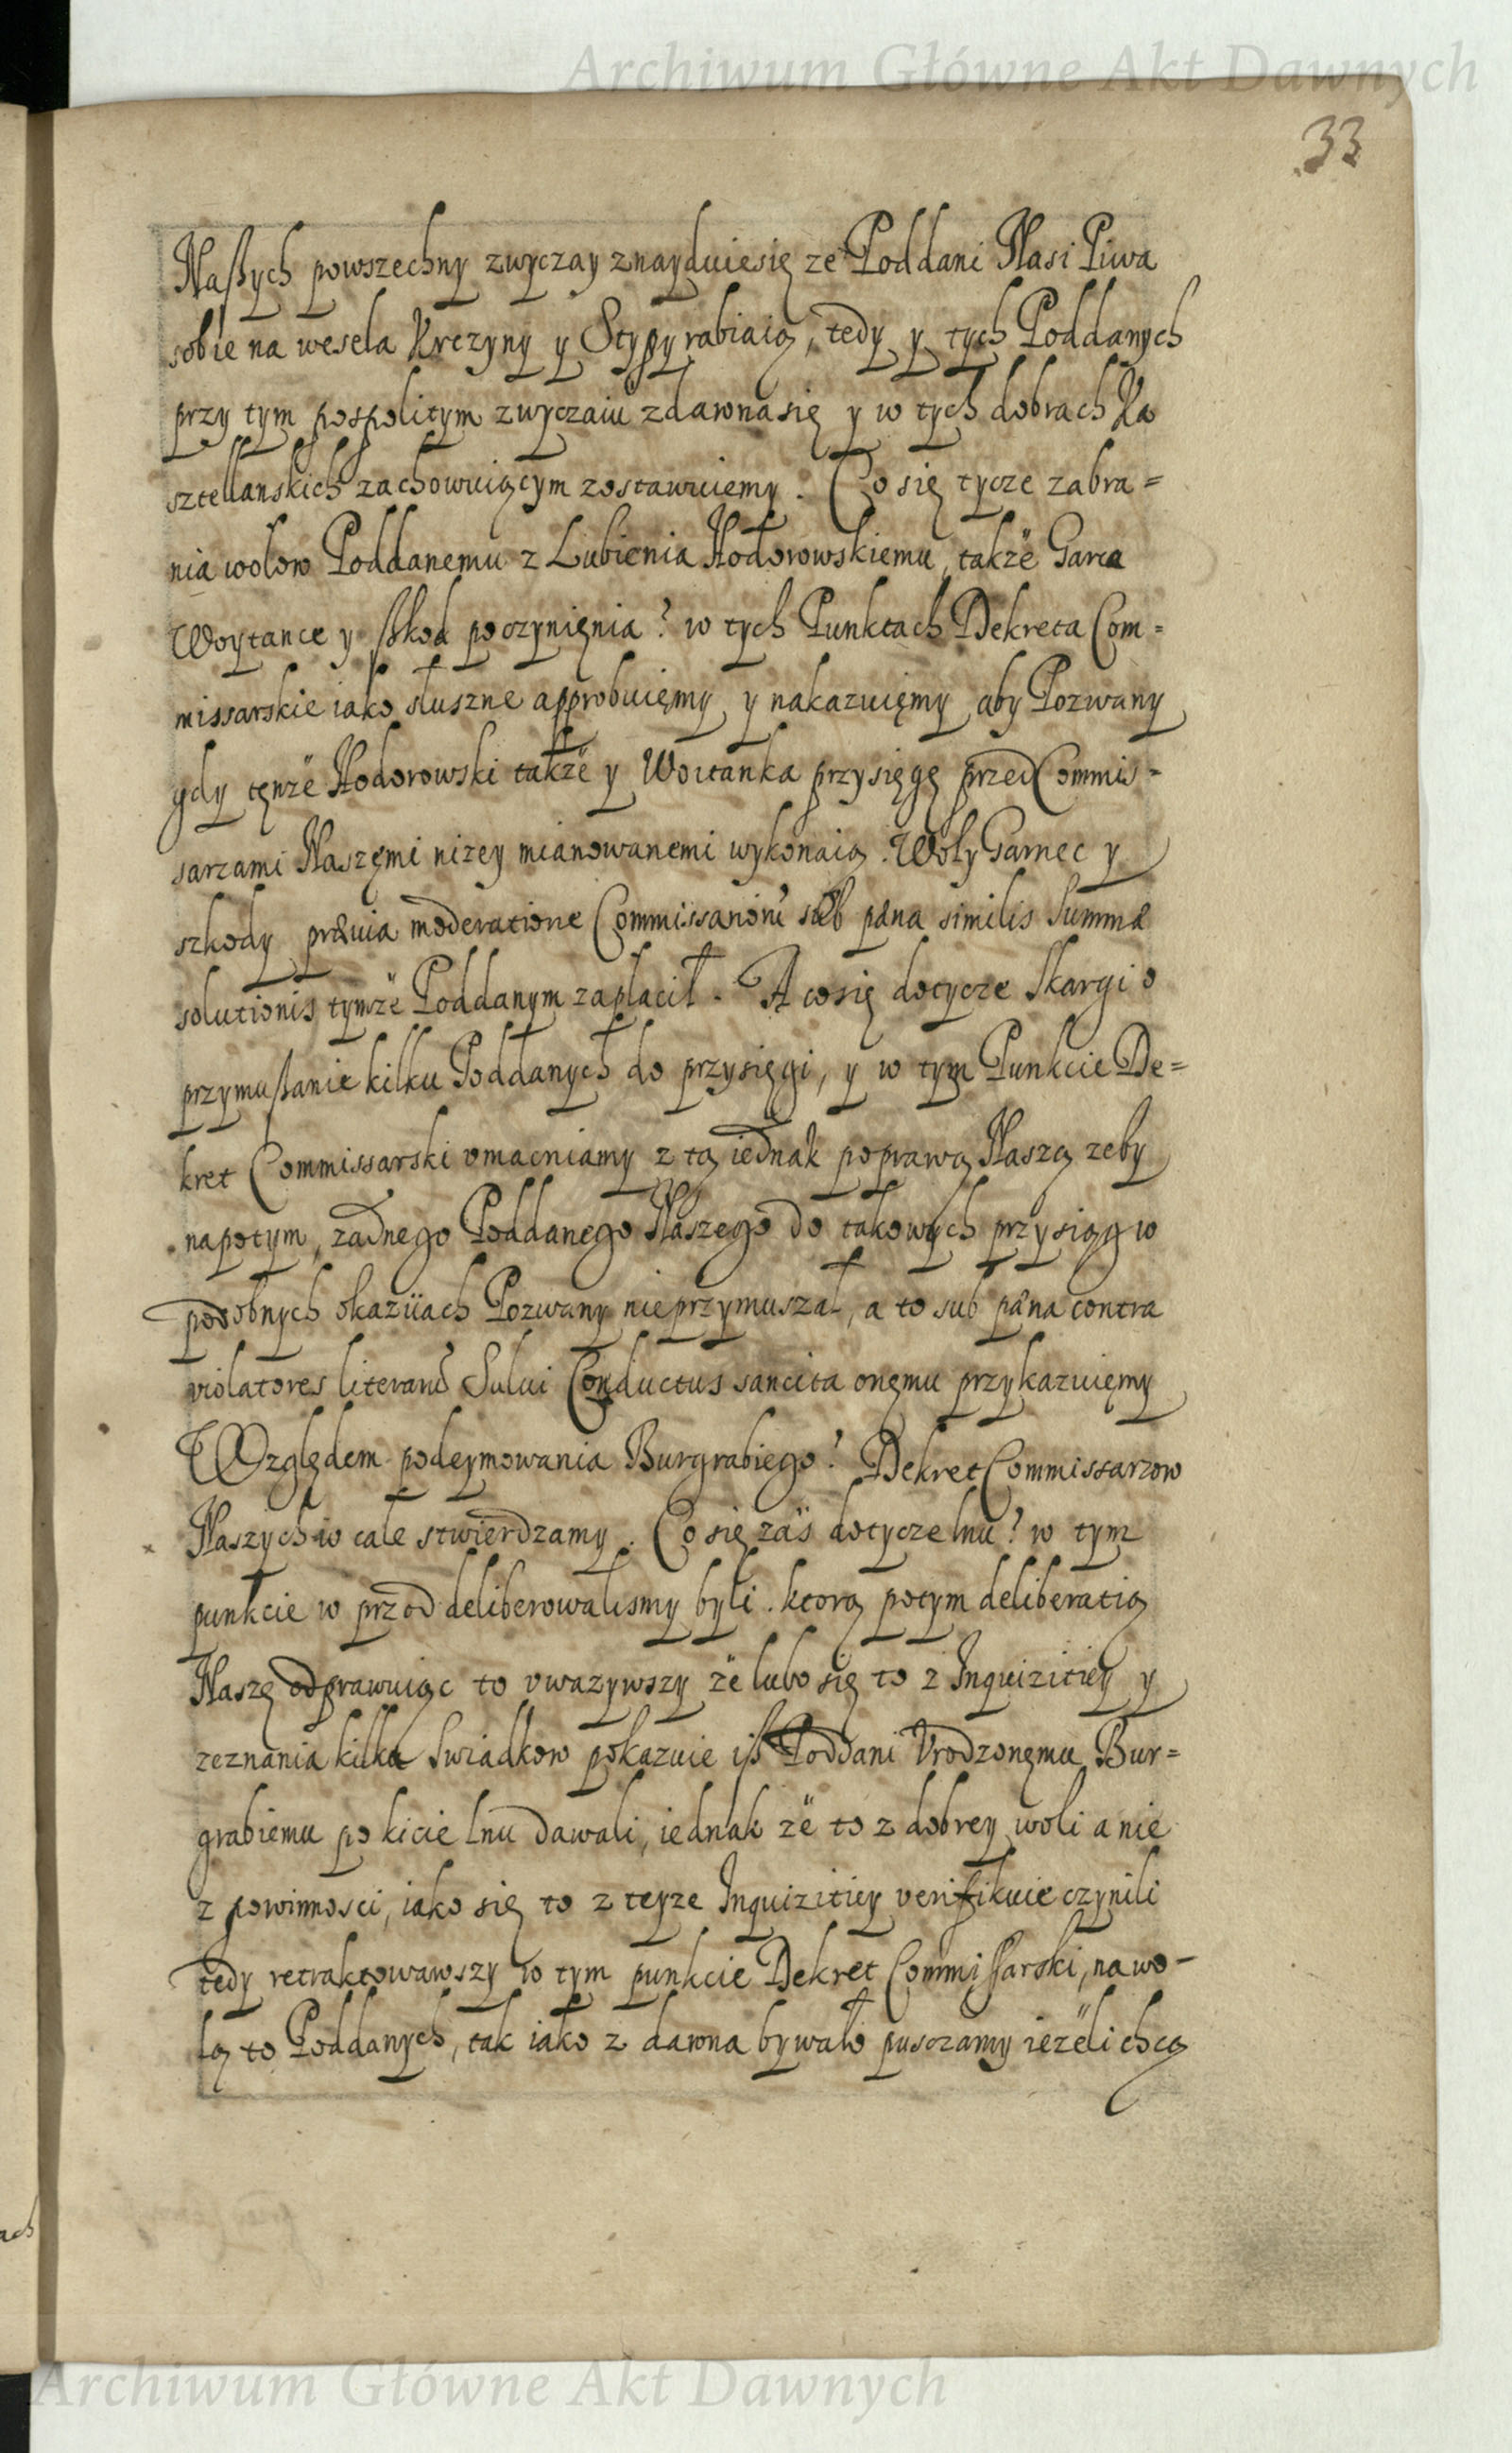 Archiwum Główne Akt Dawnych
33
Naszych powszechny zwyczay znayduiesię ze Poddani Nasi Piwa
sobie na wesela Krczyny y Stypy rabiaią, tedy y tych Poddanych
przy tym pospolitym zwyczaiu zdawnasię y w tych dobrach Ka
sztellanskich zachowuiącym zostawuiemy. Co się tycze zabra=
nia wolow Poddanemu z Lubienia Hodorowskiemu, także Garca
Woytance y szkod poczynięnia? w tych Punktach Dekreta Com=
missarskie iako słuszne approbuięmy y nakazuięmy aby Pozwany
gdy tęnże Hodorowski także y Woitanka przysięgę przed Commis=
sarzami Naszęmi nizey mianowanemi wykonaią. Woły Garnec y
szkody prævia moderatione Commissariorũ sub pæna similis summæ
solutionis tymże Poddanym zapłacił. A cosię dotycze skargi o
przymuszanie kilku Poddanych do przysięgi, y w tym Punkcie De=
kret Commissarski vmacniamy z tą iednak poprawą Naszą zeby
napotym, żadnego Poddanego Naszego do takowych przysiąg w
podobnych okaziiach Pozwany nieprzymuszał, a to sub pæna contra
violatores literarũ Salui Conductus sancita onęmu przykazuięmy
Względem podeymowania Burgrabiego? Dekret Commissarzow
Naszych w cale stwierdzamy. Co się zaś dotycze lnu? w tym
punkcie w przod deliberowalismy byli. ktorą potym deliberatią
Naszę odprawuiąc to vwazywszy że lubo się to z Inquizitiey y
zeznania kilku Swiadkow pokazuie isz Poddani Vrodzonęmu Bur=
grabiemu po kicie lnu dawali, iednak że to z dobrey woli a nie
z powinnosci, iako się to z teyze Inquizitiey verifikuie czynili
tedy retraktowawszy w tym punkcie Dekret Commissarski, na wo-
lą to Poddanych, tak iako z dawna bywało pusczamy ieżeli chcą
ach
Archiwum Główne Akt Dawnych